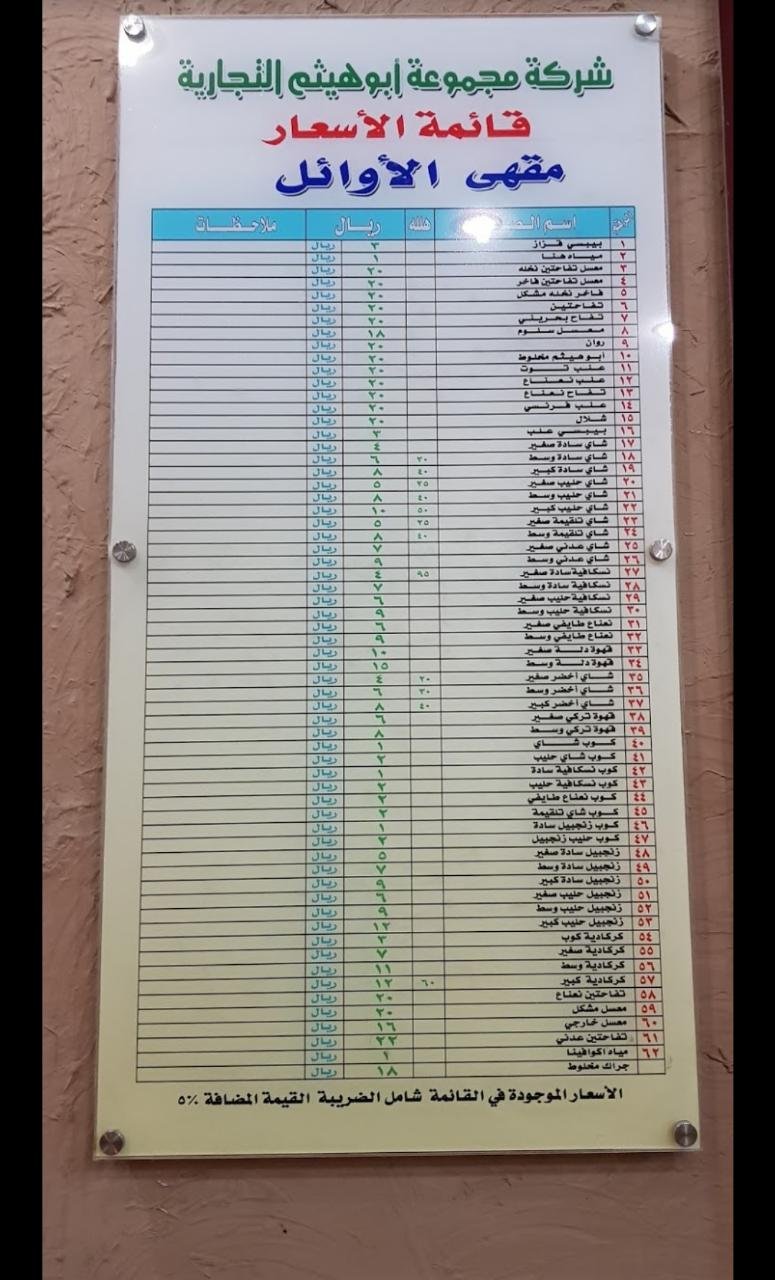 شركة مجموعة أبو هيثم التجارية
قائمة الأسعار
مقهى الأوائل
اسم هلله ريـال ملاحظات
١ بيبسي قزاز ٣ ريال
٢ مياه هنا ١ ريال
٣ معسل تفاحتين نخله ٢٠ ريال
٤ معسل تفاحتين فاخر ٢٠ ريال
٥ فاخر نخله مشكل ٢٠ ريال
٦ تفاحتين ٢٠ ريال
٧ تفاح بحريني ٢٠ ريال
٨ معسل سلوم ١٨ ريال
٩ روان ٢٠ ريال
١٠ أبو هيثم مخلوط ٢٠ ريال
١١ عنب توت ٢٠ ريال
١٢ عنب نعناع ٢٠ ريال
١٣ تفاح نعناع ٢٠ ريال
١٤ عنب فرنسي ٢٠ ريال
١٥ شلال ٢٠ ريال
١٦ بيبسي علب ٣ ريال
١٧ شاي سادة صغير ٤ ريال
١٨ شاي سادة وسط ٣٠ ٦ ريال
١٩ شاي سادة كبير ٤٠ ٨ ريال
٢٠ شاي حليب صغير ٢٥ ٥ ريال
٢١ شاي حليب وسط ٤٠ ٨ ريال
٢٢ شاي حليب كبير ٥٠ ١٠ ريال
٢٣ شاي تلقيمة صغير ٢٥ ٥ ريال
٢٤ شاي تلقيمة وسط ٤٠ ٨ ريال
٢٥ شاي عدني صغير ٧ ريال
٢٦ شاي عدني وسط ٩ ريال
٢٧ نسكافية سادة صغير ٩٥ ٤ ريال
٢٨ نسكافية سادة وسط ٧ ريال
٢٩ نسكافية حليب صغير ٦ ريال
٣٠ نسكافية حليب وسط ٩ ريال
٣١ نعناع طايفي صغير ٦ ريال
٣٢ نعناع طايفي وسط ٩ ريال
٣٣ قهوة دلة صغير ١٠ ريال
٣٤ قهوة دلة وسط ١٥ ريال
٣٥ شاي أخضر صغير ٢٠ ٤ ريال
٣٦ شاي أخضر وسط ٣٠ ٦ ريال
٣٧ شاي أخضر كبير ٤٠ ٨ ريال
٣٨ قهوة تركي صغير ٦ ريال
٣٩ قهوة تركي وسط ٨ ريال
٤٠ كوب شاي ١ ريال
٤١ كوب شاي حليب ٢ ريال
٤٢ كوب نسكافية سادة ١ ريال
٤٣ كوب نسكافية حليب ٢ ريال
٤٤ كوب نعناع طايفي ٢ ريال
٤٥ كوب شاي تلقيمة ٢ ريال
٤٦ كوب زنجبيل سادة ١ ريال
٤٧ كوب حليب زنجبيل ٢ ريال
٤٨ زنجبيل سادة صغير ٥ ريال
٤٩ زنجبيل سادة وسط ٧ ريال
٥٠ زنجبيل سادة كبير ٩ ريال
٥١ زنجبيل حليب صغير ٦ ريال
٥٢ زنجبيل حليب وسط ٩ ريال
٥٣ زنجبيل حليب كبير ١٢ ريال
٥٤ كركادية كوب ٣ ريال
٥٥ كركادية صغير ٧ ريال
٥٦ كركادية وسط ١١ ريال
٥٧ كركادية كبير ٦٠ ١٢ ريال
٥٨ تفاحتين نعناع ٢٠ ريال
٥٩ معسل مشكل ٢٠ ريال
٦٠ معسل خارجي ١٦ ريال
٦١ تفاحتين عدني ٢٢ ريال
٦٢ مياه اكوافينا ١ ريال
جراك مخلوط ١٨ ريال
الأسعار الموجودة في القائمة شامل الضريبة القيمة المضافة ٥%